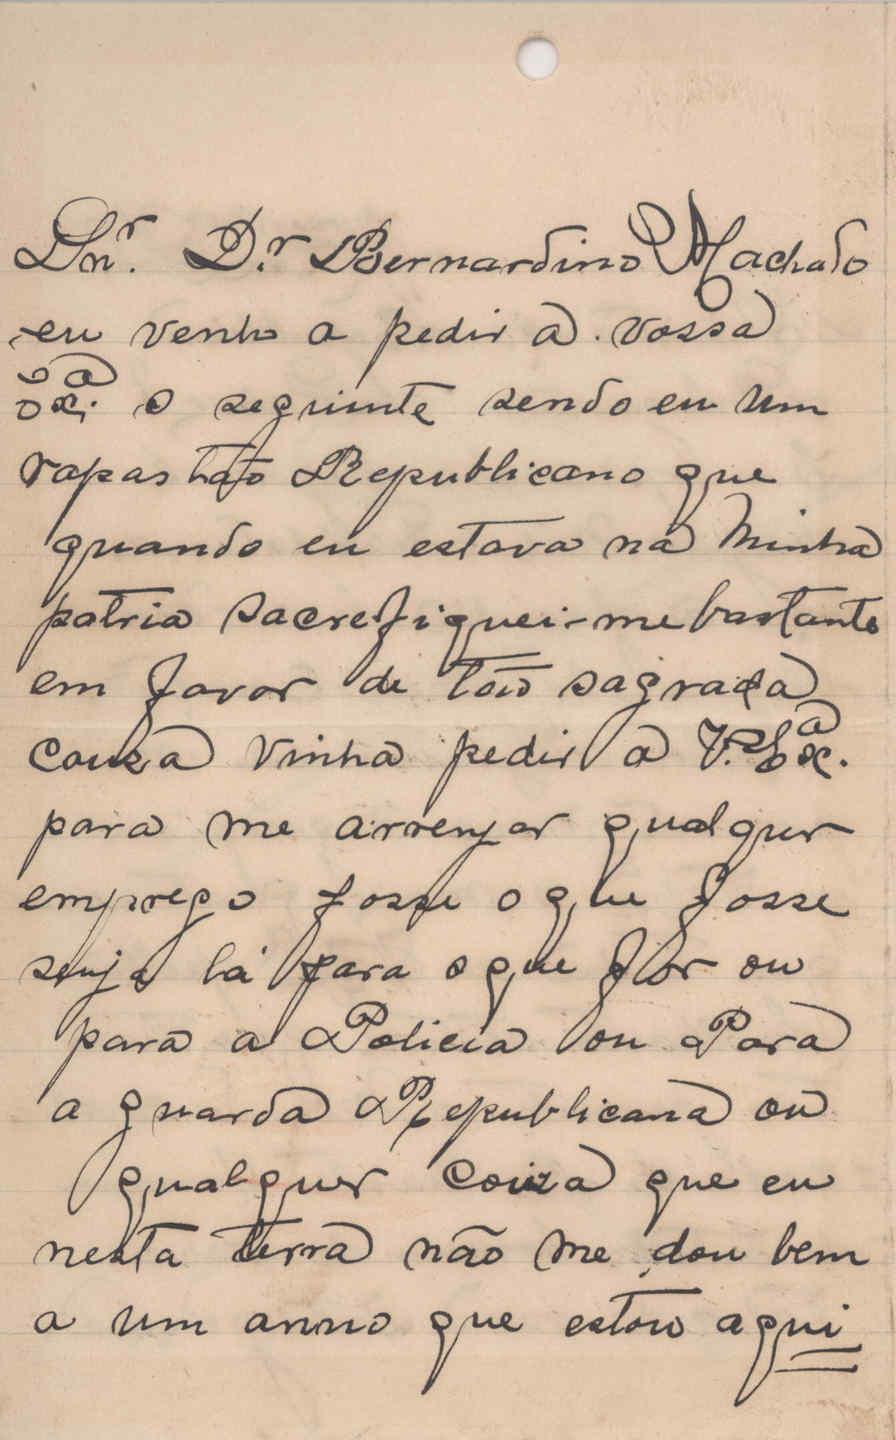 Snr. Dr. Bernardino Machado
eu venho a pedir a. vossa
Exª. o seguinte sendo eu um
rapas tão Republicano que
quando eu estava na minha
patria sacrefiquei-me bastante
em favor de tão sagrada
couza vinha pedir a V. Exª.
para me arrenjar qualquer
emprego fosse o que fosse
senja lá para o que for ou
para a Policia ou Para
a guarda Republicana ou
qualquer couza que eu
nesta terra não me dou bem
a um anno que estou aqui